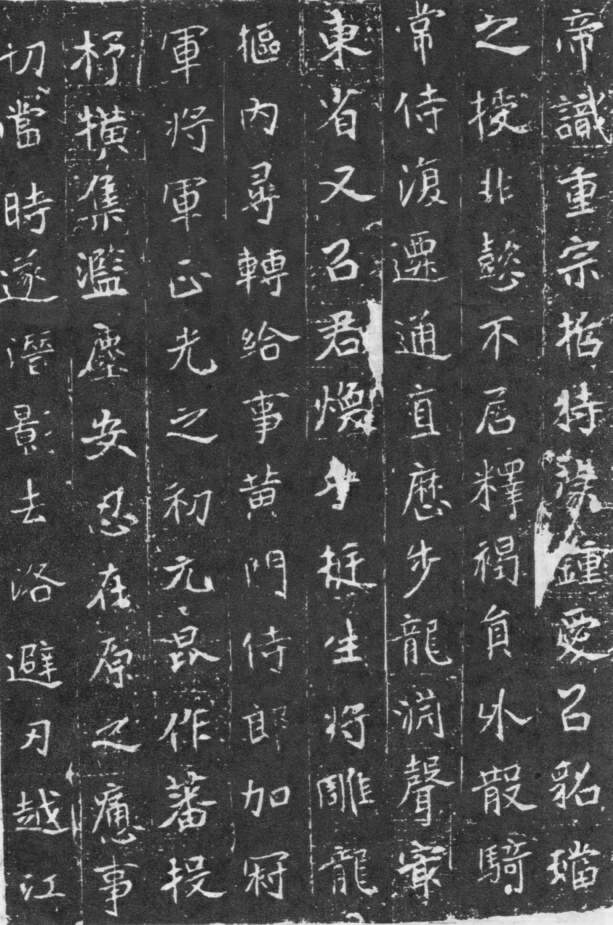 帝識重宗哲特蒙鍾愛召貂璫
之授非懿不居釋褐員外散騎
常侍復遷通直歷步龍淵聲實
東省又召君煥挺生將雕龍
樞內尋轉給事黃門侍郎加冠
軍將軍正光之初元昆作蕃投
杼橫集濫塵安忍在原之痛事
切當時遂潛影去洛避刃越江